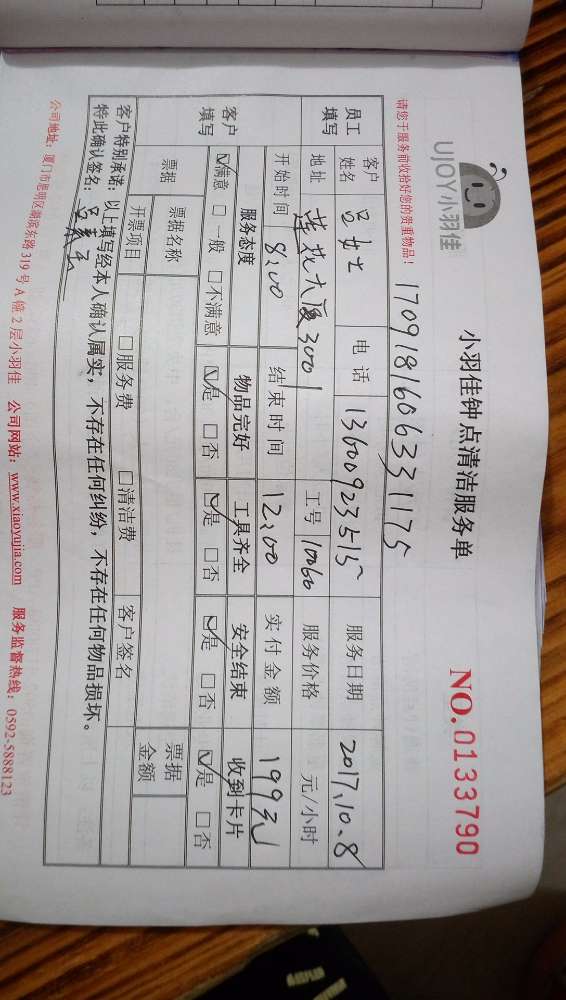 UJOY小羽佳
小羽佳钟点清洁服务单
NO.0133790
请您于服务前收拾好您的贵重物品！
1709181606331175
员工填写 客户姓名 吕女士 电话 13600923515 服务日期 2017.10.8
地址 莲花大厦3001 工号 10060 服务价格 元/小时
开始时间 8:00 结束时间 12:00 实付金额 199元
客户填写 服务态度 物品完好 工具齐全 安全结束 收到卡片
☑满意 □一般 □不满意 ☑是 □否 ☑是 □否 ☑是 □否 ☑是 □否
票据 票据名称 票据金额
开票项目 □服务费 □清洁费 客户签名
客户特别承诺：以上填写经本人确认属实，不存在任何纠纷，不存在任何物品损坏。
特此确认签名：
公司地址：厦门市思明区湖滨东路319号A幢2层小羽佳 公司网站：www.xiaoyujia.com 服务监督热线：0592-5888123